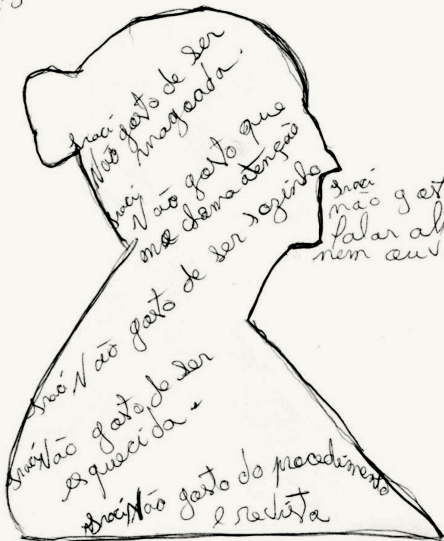 Iraci
Não gosto de ser
magoada.
Iraci
Não gosto que
me chama atenção
Iraci Não gosto de ser sozinha
Iraci
não gost
falar al
nem ouv
Iraci Não gosto de ser
esquecida.
Iraci Não gosto do procedimento
e revista